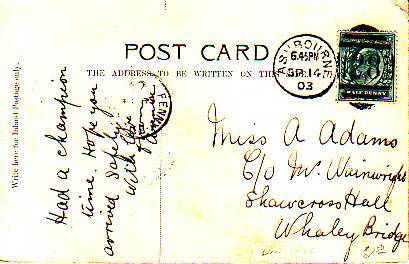 POST CARD
THE ADDRESS TO BE WRITTEN ON THIS
Write here for Inland Postage only.
ASHBOURNE
6.45PM
SP 14
03
HALFPENNY
Had a champion
time. Hope you
arrived safely
with love
from
FENN
Miss A Adams
C/o Mr. Wainwright
Shawcross Hall
Whaley Bridge